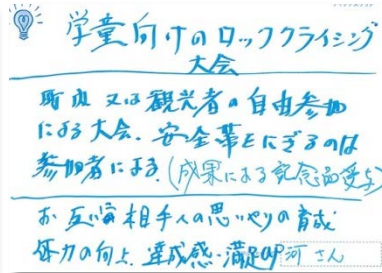 学童向けのロッククライミング
大会
町民又は観光者の自由参加
による大会。安全帯をにぎるのは
参加者による。(成果による記念品受与)
お互い 相手への思いやりの育成
体力の向上、達成感・満足UP 河 さん